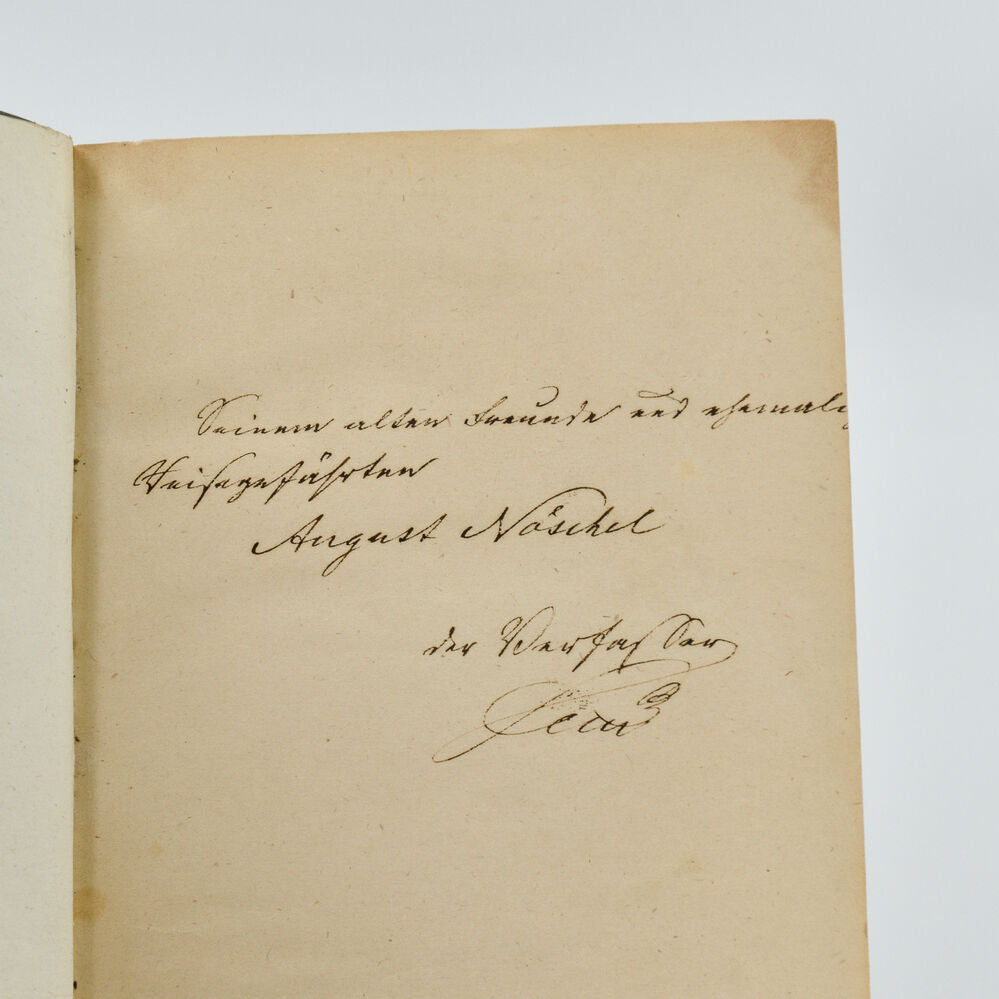 Seinem alten Freunde und ehemalig
Reisegefährten
August Nöschel
der Verfasser